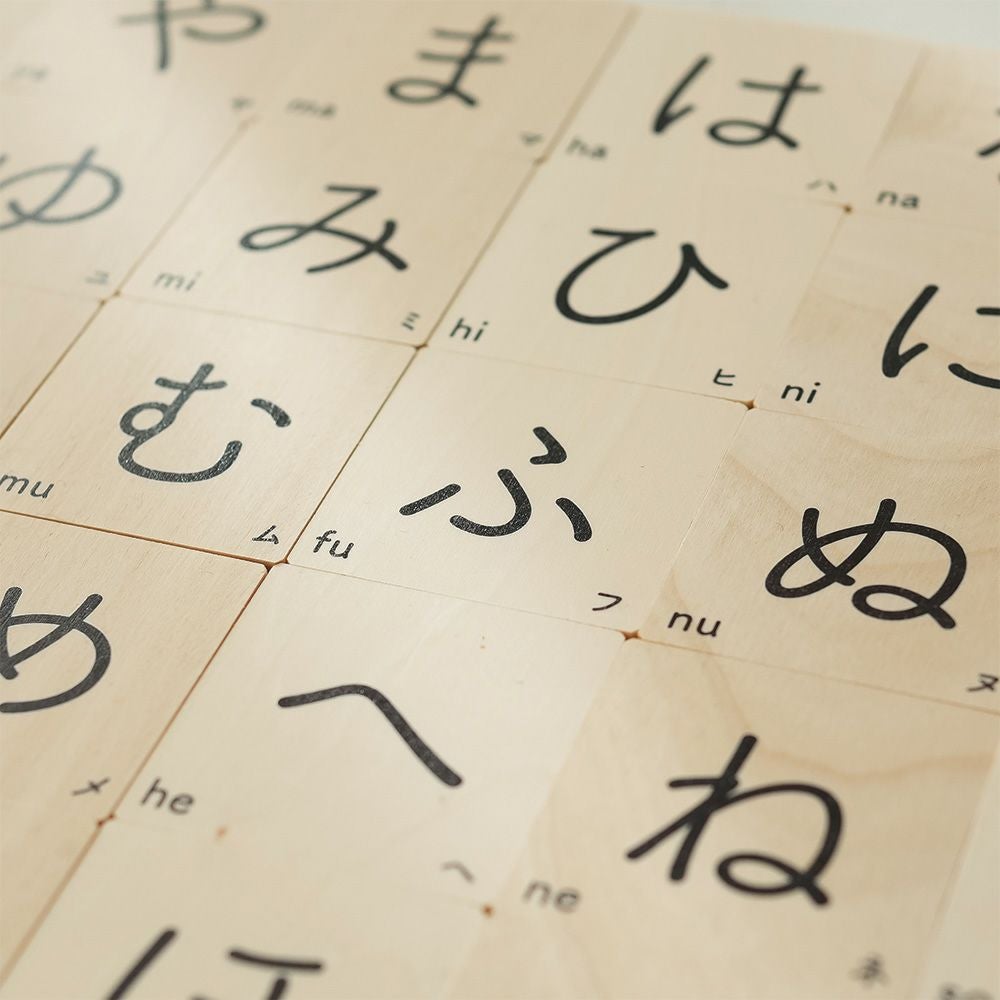 や
ヤ
ま
ma
マ
は
ha
ハ
na
ゆ
ユ
み
mi
ミ
ひ
hi
ヒ
に
ni
む
mu
ム
ふ
fu
フ
ぬ
nu
ヌ
め
メ
へ
he
ヘ
ね
ne
ネ
ほ